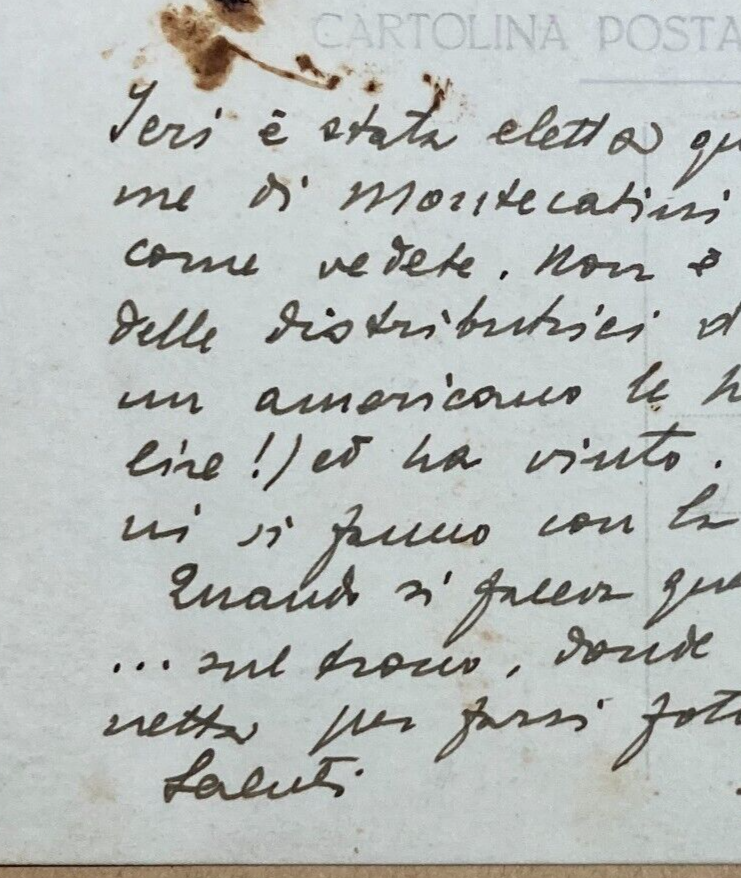 CARTOLINA POSTA
Ieri è stata eletta qu
me di Montecatini
come vedete. Non è
delle distributrici d
un americano le h
lire!) ed ha vinto.
ni si fanno con la
Quando si faceva que
... sul trono, donde
netta per farsi foto
Saluti